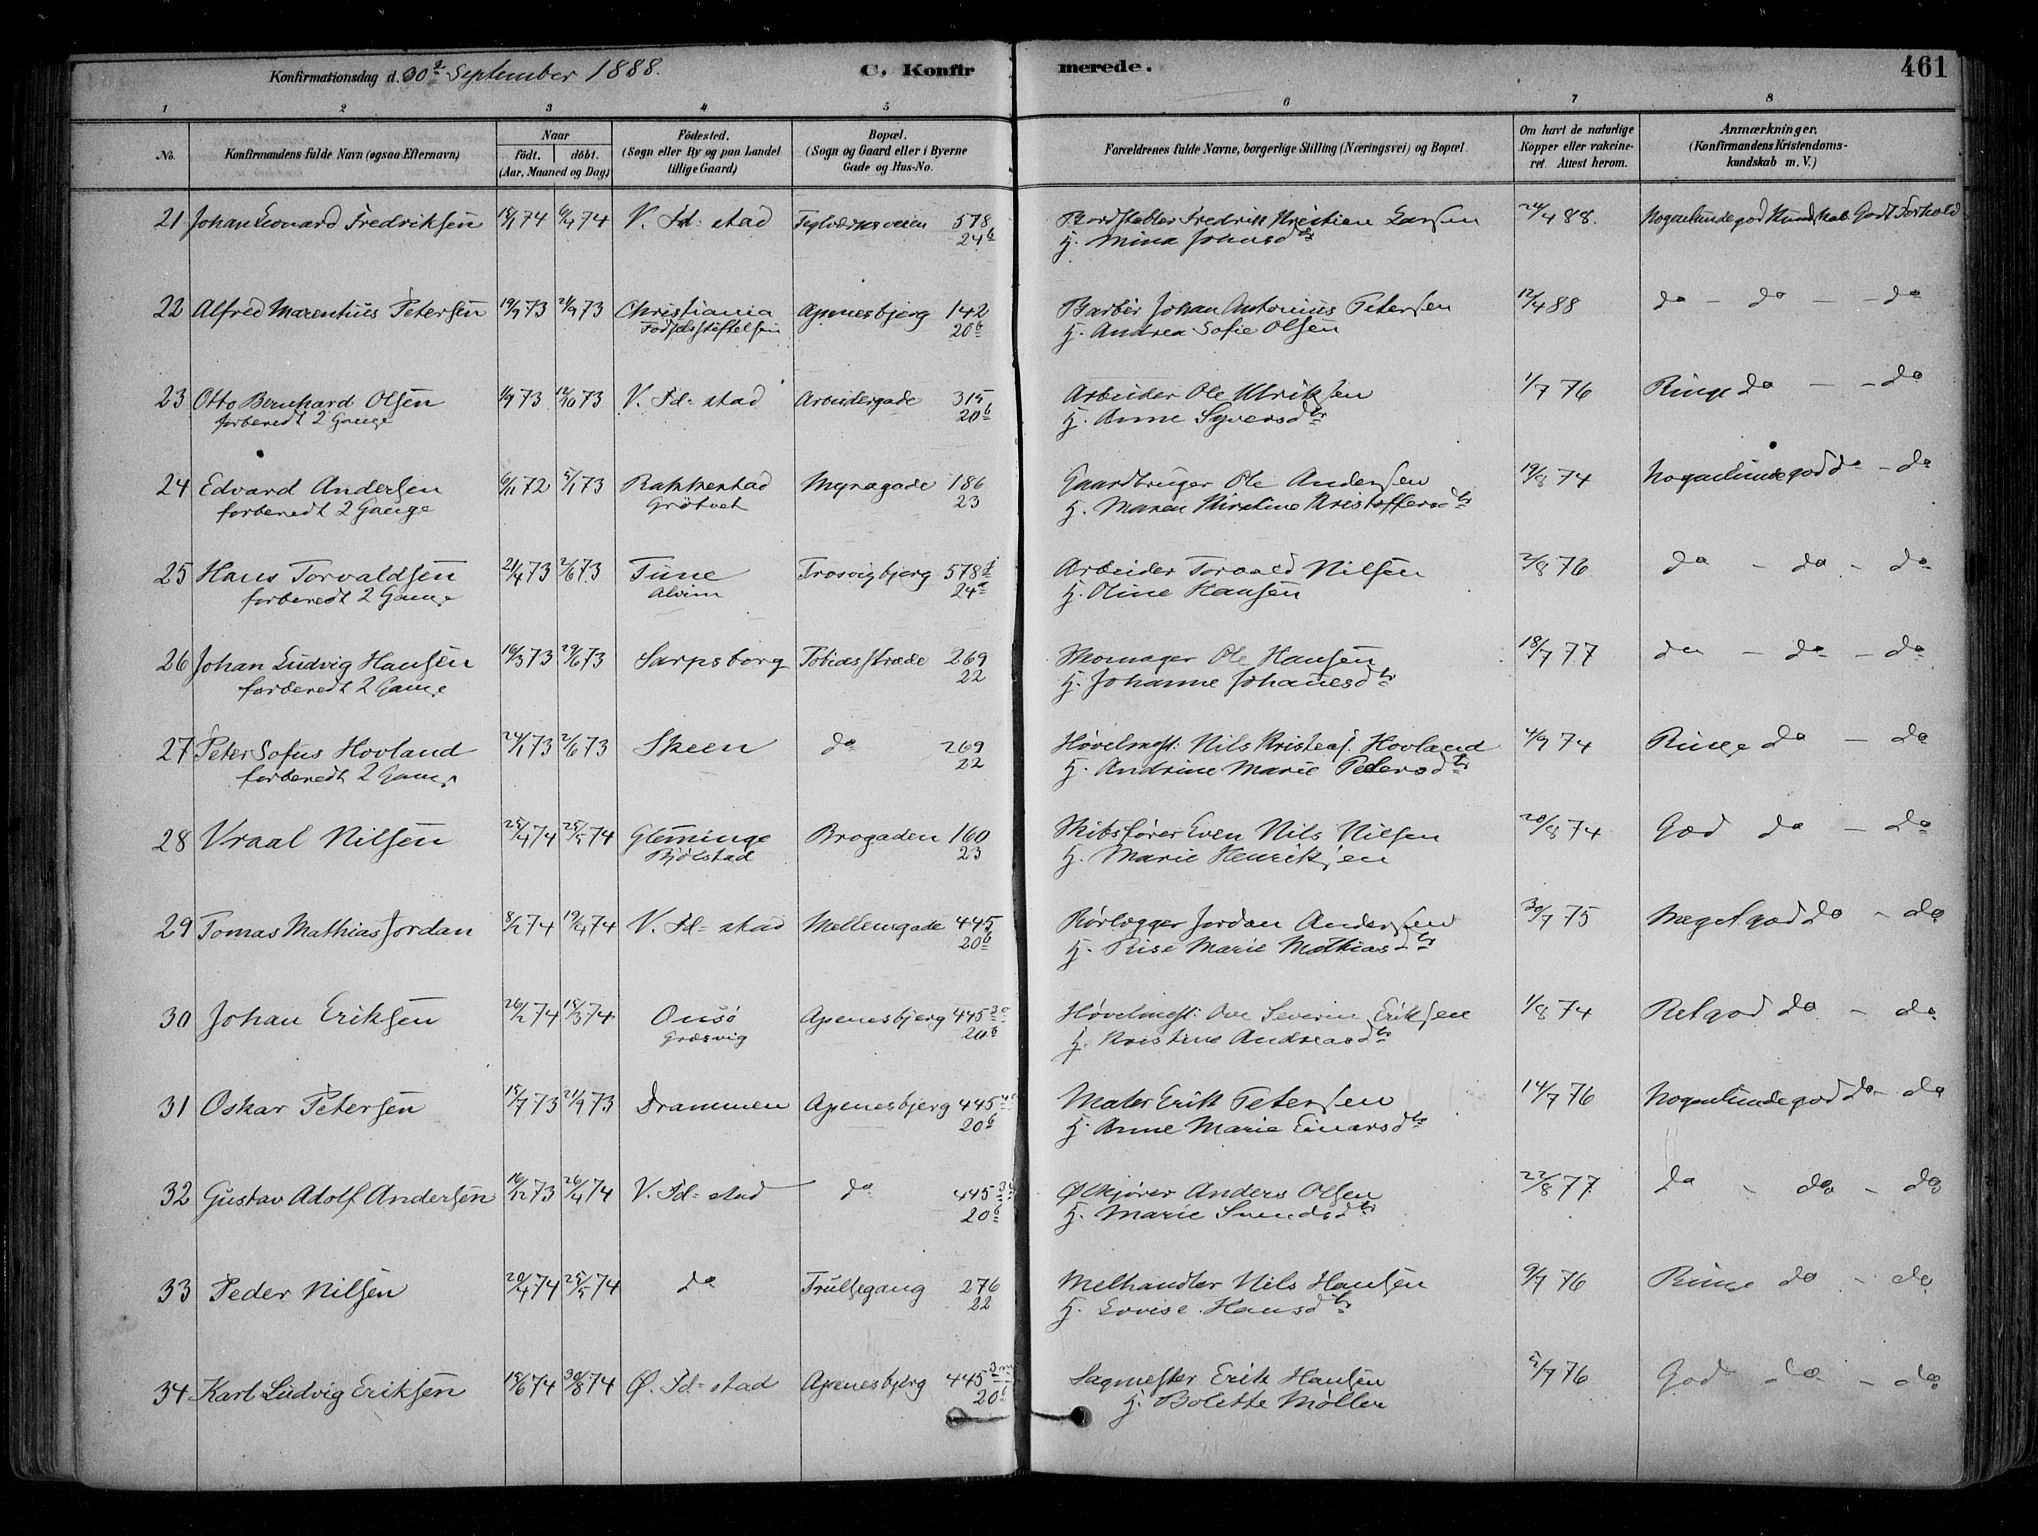 Konfirmationsdag d. 30te September 1888. C. Konfirmerede. 461
1 2 3 4 5 6 7 8
No. Konfirmandens fulde Navn (ogsaa Efternavn) Naar født. døbt. (Aar, Maaned og Dag) Fødested. (Sogn eller By og paa Landet tillige Gaard) Bopæl. (Sogn og Gaard eller i Byerne Gade og Hus-No. Forældrenes fulde Navne, borgerlige Stilling (Næringsvei) og Bopæl. Om havt de naturlige Kopper eller vakcineret. Attest herom. Anmærkninger. (Konfirmandens Kristendomskundskab m. V.)
21 Johan Leonard Fredriksen 18/1 74 6/4 74 V. Fd-stad 578 Bordstabler Fredrik Kristian Larsen 24/4 88. Nogenlunde god Kundskab Godt Forhold
24b Hj. Mina Johnsdtr
22 Alfred Marentius Petersen 19/7 73 21/9 73 Christiania Apenesbjerg 142 Barbér Johan Antonius Petersen 12/4 88 do - do - - do
Fødselsstiftelsen 20b Hj. Andrea Sofie Olsen
23 Otto Bernhard Olsen 1/9 73 12/10 73 V. Fd-stad Arbeidergade 315 Arbeider Ole Ulriksen 1/7 76 Ringe do - - do
forberedt 2 Gange 20b Hj. Anne Syversdtr
24 Edvard Andersen 6/11 72 5/1 73 Rakkestad Myragade 186 Gaardbruger Ole Andersen 19/8 74 Nogenlunde god do - do
forberedt 2 Gange Grøtvet 23 Hj. Maren Kirstine Kristoffersdtr
25 Hans Torvaldsen 21/4 73 2/6 73 Tune Trosvigbjerg 578 Arbeider Torvald Nilsen 2/8 76 do - do - do
forberedt 2 Gange Alvim 24a Hj. Oline Hansen
26 Johan Ludvig Hansen 16/3 73 29/6 73 Sarpsborg Tobiasstræde 269 Skomager Ole Hansen 18/7 77 do - do - do
forberedt 2 Gange 22 Hj. Johanne Johanesdtr
27 Peter Sofus Hovland 24/1 73 2/6 73 Skeen do 269 Høvelmest: Nils Kristens. Hovland 4/9 74 Ringe do - do
forberedt 2 Gange 22 Hj. Andrine Marie Petersdtr
28 Vraal Nilsen 25/4 74 25/5 74 Glemminge Brogaden 160 Skibsfører Even Nils Nilsen 20/8 74 God do - do
Bjølstad 23 Hj. Marie Henriksen
29 Tomas Mathias Jordan 8/2 74 19/4 74 V. Fd-stad Mellemgade 445 Rørlægger Jordan Andersen 30/7 75 Meget god do - do
20b Hj. Rise Marie Mathiasdtr
30 Johan Eriksen 26/2 74 15/3 74 Onsø Apenesbjerg 445 Høvelmest: Ove Severin Eriksen 1/8 74 Ret god do - do
Græsvig 20b Hj. Kristine Andreasdtr
31 Oskar Petersen 15/7 73 21/9 73 Drammen Apenesbjerg 445 Maler Erik Petersen 14/7 76 Nogenlunde god do - do
20b Hj. Anne Marie Einarsdtr
32 Gustav Adolf Andersen 16/12 73 26/4 74 V. Fd-stad do 445 Ølkjører Anders Olsen 22/8 77 do - do - do
20b Hj. Marie Svendsdtr
33 Peder Nilsen 20/4 74 25/5 74 do Trulsegang 276 Melhandler Nils Hansen 9/7 76 Ringe do - do
22 Hj. Lovise Hansdtr
34 Karl Ludvig Eriksen 15/6 74 30/8 74 Ø. Fd-stad Apenesbjerg 445 Sagmester Erik Hansen 5/7 76 God do - do
20b Hj. Bolette Møller